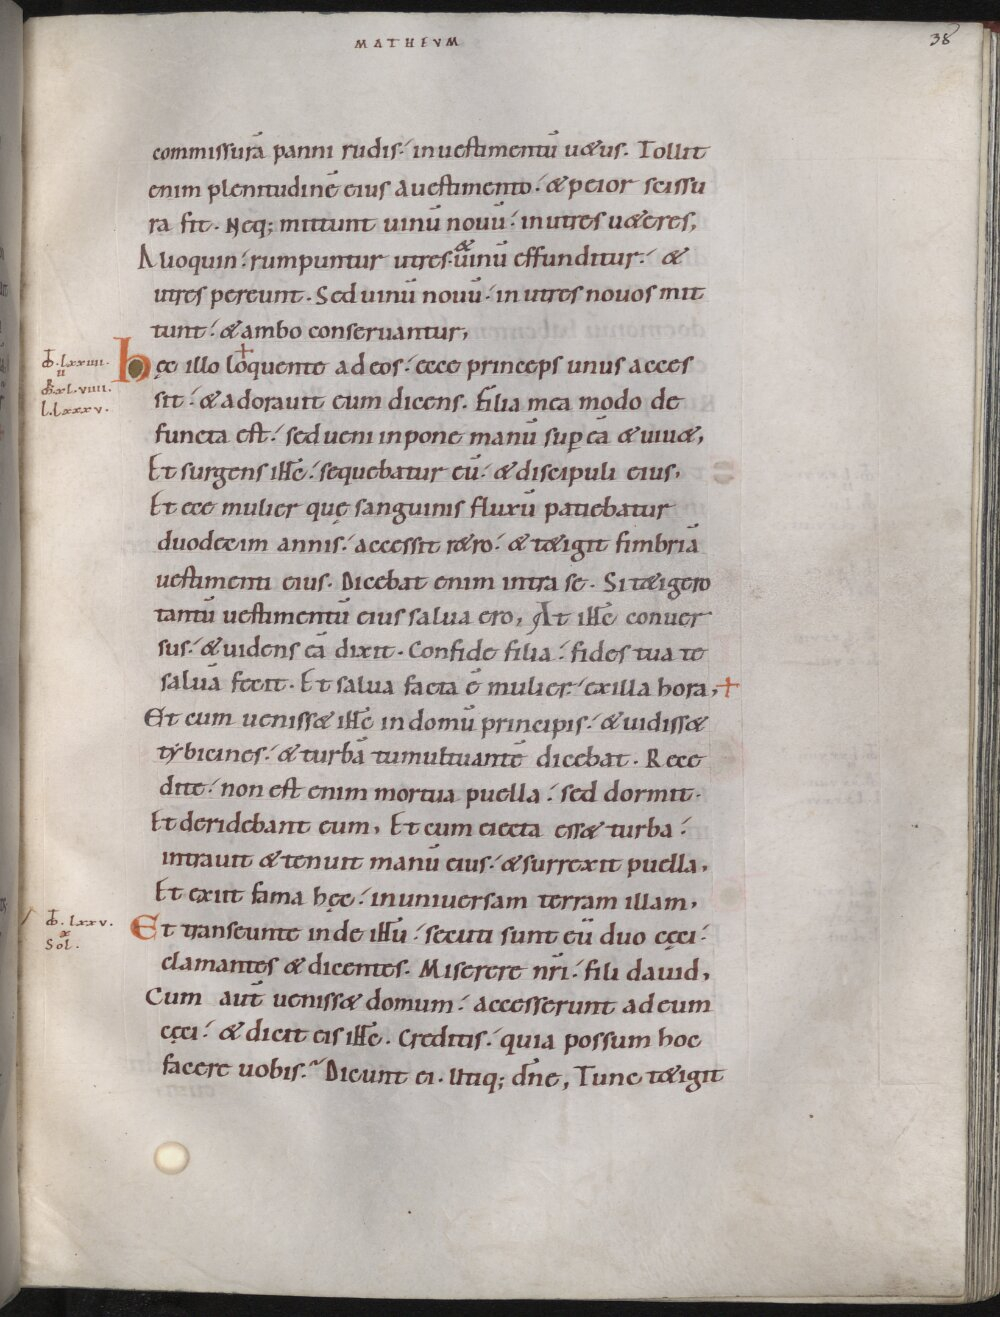 MATHEVM
38
commissurā panni rudis. in uestimentū uetus. Tollit
enim plenitudinē eius a uestimento. & peior scissu
ra fit. Neq; mittunt uinū nouū. in utres ueteres,
Alioquin. rumpuntur utres. & uinū effunditur. &
utres pereunt. Sed uinū nouū. in utres nouos mit
tunt. & ambo conseruantur,
hęc illo loquente ad eos. ecce princeps unus acces
sit. & adorauit eum dicens. Filia mea modo de
functa est. sed ueni inpone manū sup eā & uiu&,
Et surgens ihc̄. sequebatur eū. & discipuli eius,
Et ecce mulier quę sanguinis fluxū patiebatur
duodecim annis. accessit r&ro. & t&igit fimbriā
uestimenti eius. Dicebat enim intra se. Si t&igero
tantū uestimentū eius salua ero, At ihc̄ conuer
sus. & uidens eā dixit. Confide filia. fides tua te
saluā fecit. Et salua facta ē mulier. ex illa hora,
Et cum ueniss& ihc̄ in domū principis. & uidiss&
tybicines. & turbā tumultuantē dicebat. Rece
dite. non est enim mortua puella. sed dormit.
Et deridebant eum, Et cum eiecta ess& turba.
intrauit & tenuit manū eius. & surrexit puella,
Et exiit fama hęc. in uniuersam terram illam,
.lxxiiii.
ii
xl.viiii.
l.lxxxv.
Et transeunte inde ihū. secuti sunt eū duo cęci.
clamantes & dicentes. Miserere nr̄i. fili dauid,
Cum autē ueniss& domum. accesserunt ad eum
cęci. & dicit eis ihc̄. Creditis. quia possum hoc
facere uobis. Dicunt ei. Utiq; dn̄e, Tunc t&igit
.lxxv.
x
Sol.